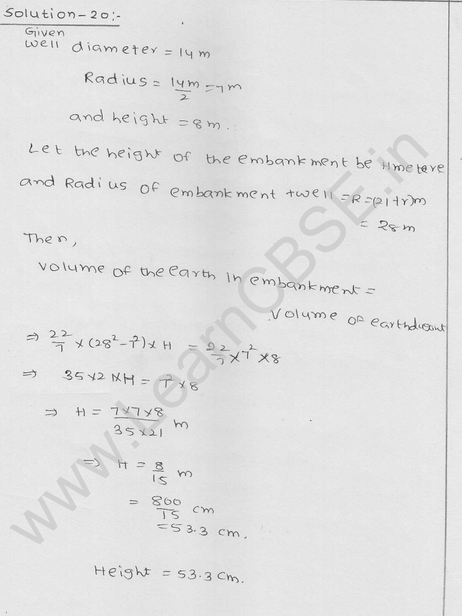 Solution-20:-
Given
Well diameter = 14m
Radius = 14m/2 = 7m
and height = 8m.
Let the height of the embankment be Hmetere
and Radius of embankment +well = R = (21+r)m
= 28m
Then,
Volume of the earth in embankment =
Volume of earthdugout
⇒ 22/7 × (28² - 7²) × H = 22/7 × 7² × 8
⇒ 35×21×H = 7² × 8
⇒ H = 7×7×8/35×21 m
⇒ H = 8/15 m
= 800/15 cm
= 53.3 cm.
Height = 53.3 cm.
www.LearnCBSE.in